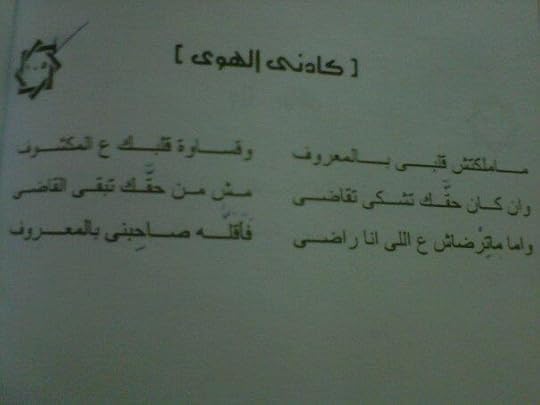 [ كادنى الهوى ]
مـا ملكتش قلبـى بـالمعروف وقـاوة قلبـك ع المكشـوف
وان كـان حقَّـك تشـكى تقاضـى مـش مـن حقَّـك تبقـى القاضـى
واما ماتِرْضاش ع اللى انا راضـى فَاقَلَّـه صـاحِبنى بالمعـروف